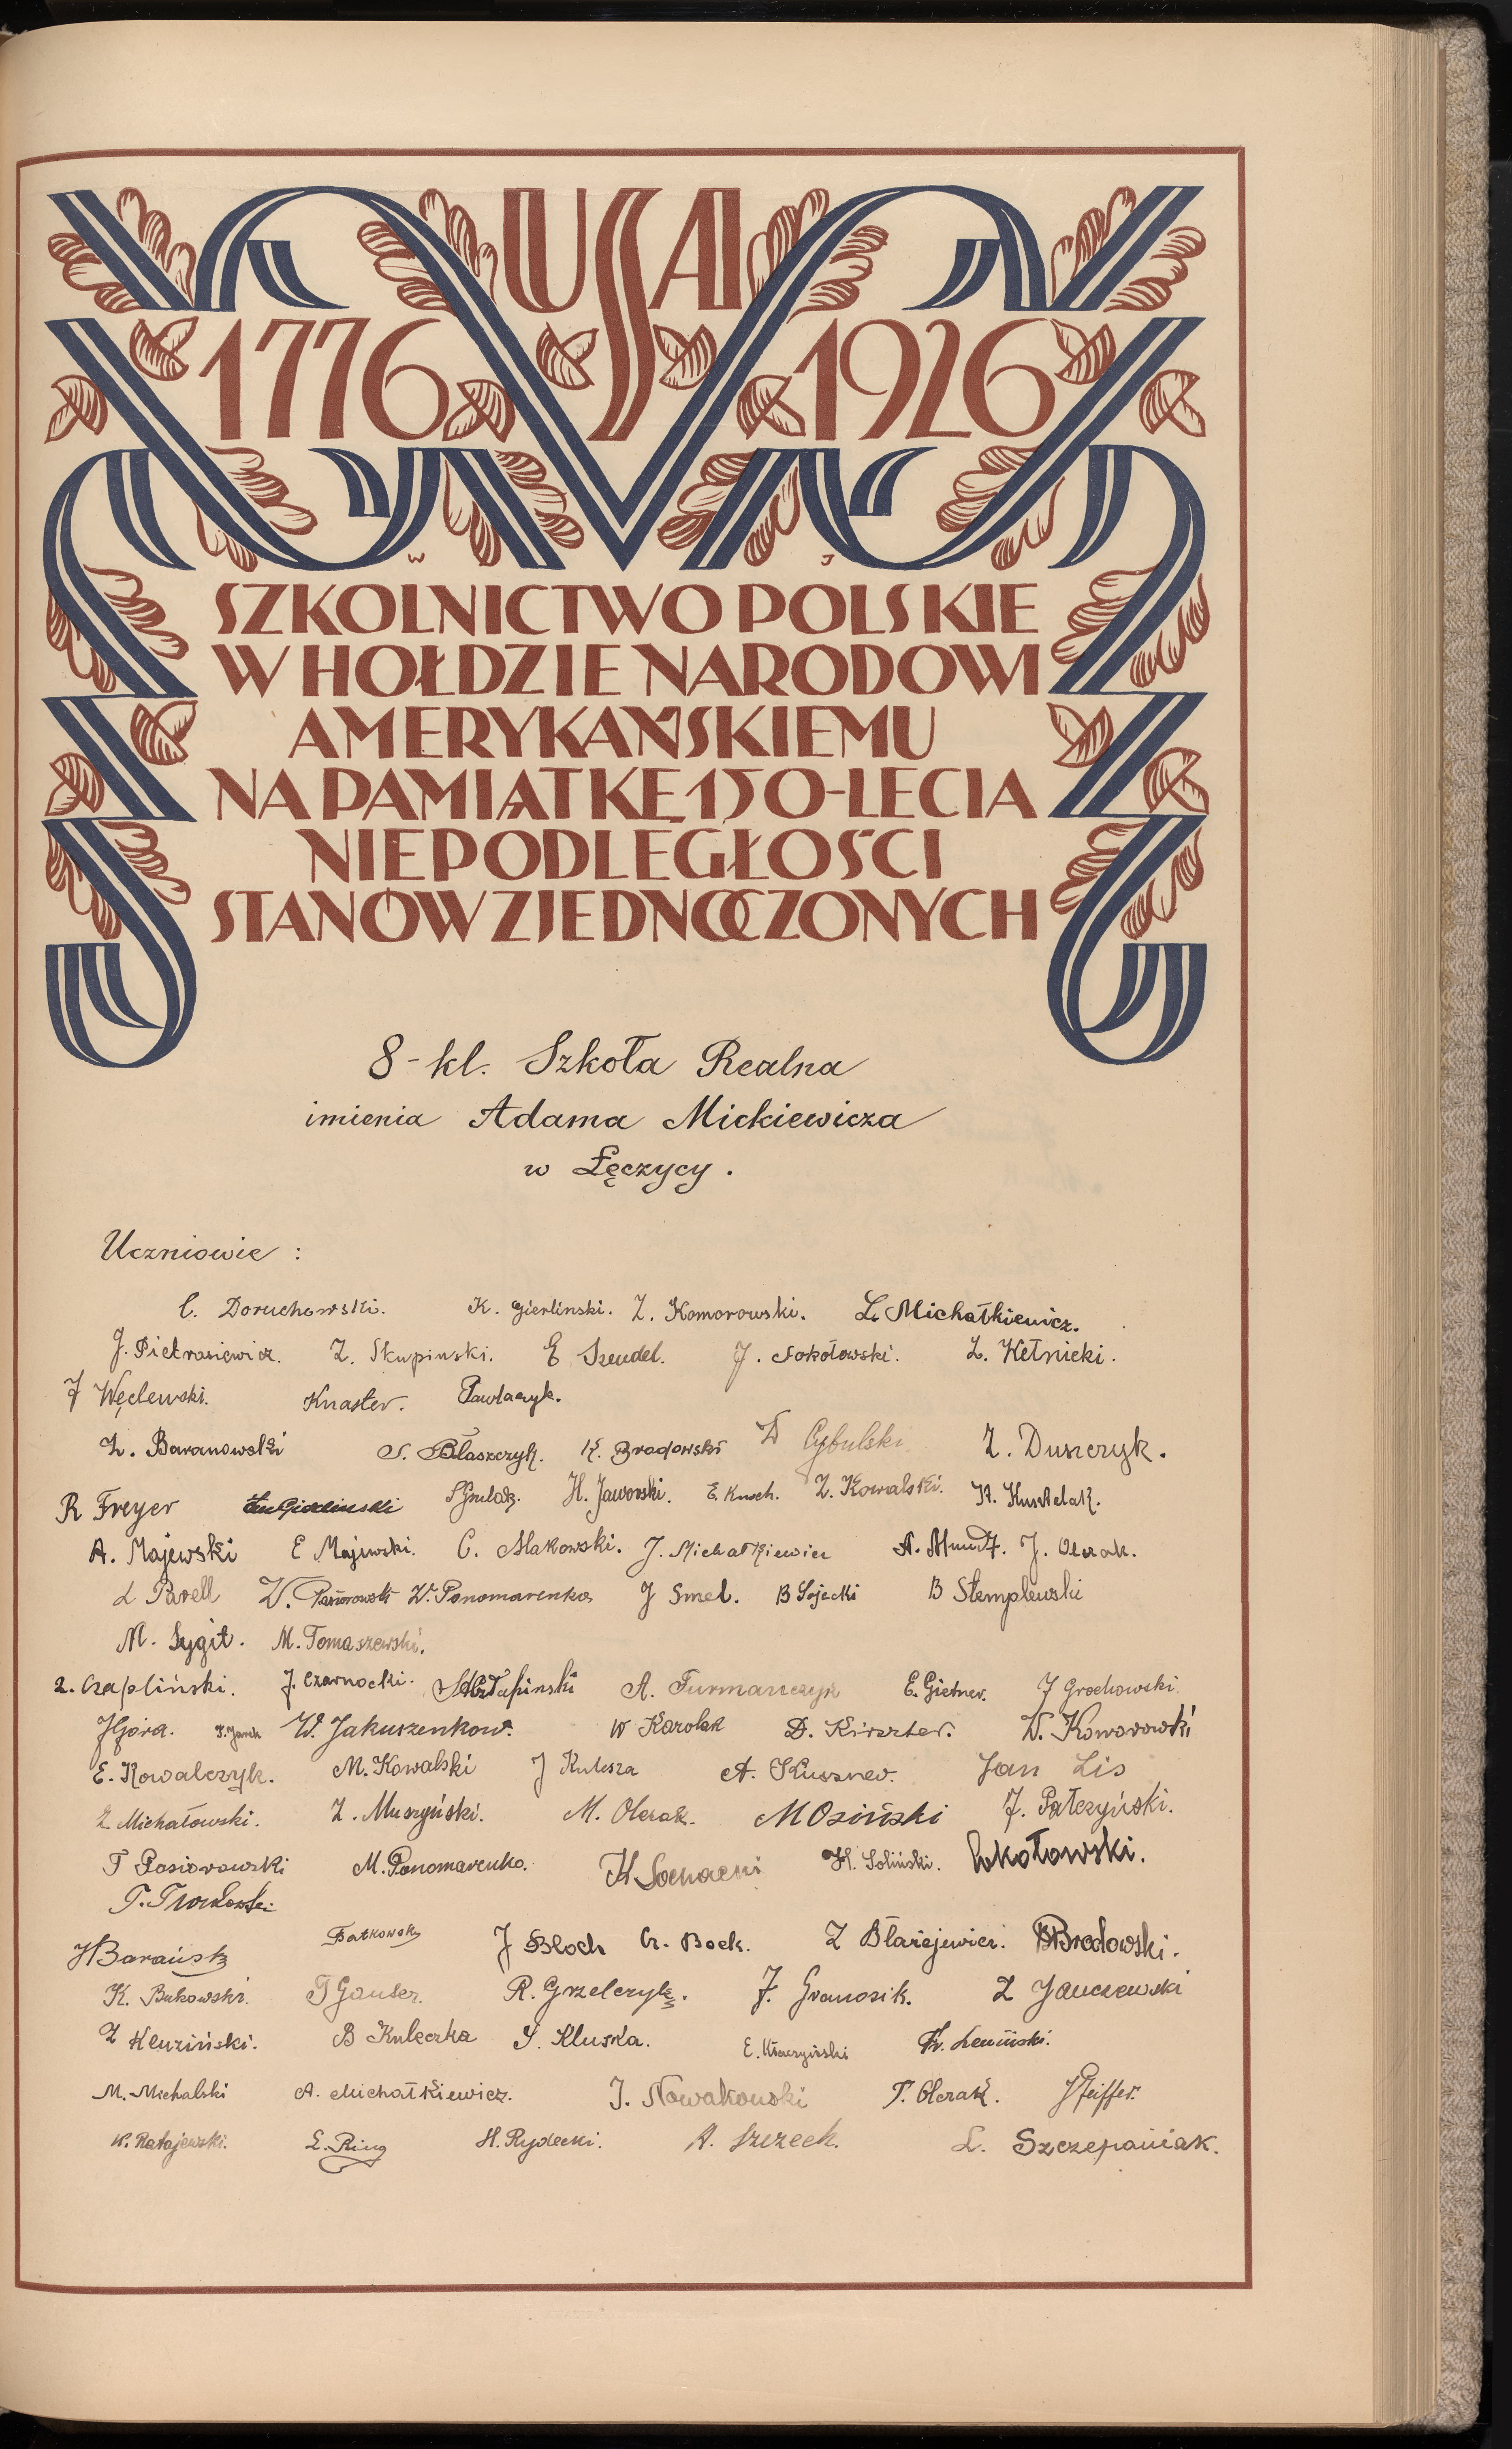 USA
1776 1926
W J
SZKOLNICTWO POLSKIE
W HOŁDZIE NARODOWI
AMERYKAŃSKIEMU
NA PAMIĄTKĘ 150-LECIA
NIEPODLEGŁOŚCI
STANÓW ZJEDNOCZONYCH
8-kl. Szkoła Realna
imienia Adama Mickiewicza
w Łęczycy.
Uczniowie :
C. Doruchowski. K. Gierlinski. Z. Komorowski. L. Michałkiewicz.
J. Pietrasiewicz. Z. Skupinski. E Szeudel. J. Sokołowski. Z. Wełnicki.
J Węclewski. Knaster. Pawlaczyk.
Z. Baranowski S. Błaszczyk. K. Brodowski W Cybulski Z. Duszczyk.
R Freyer H. Jaworski. E. Kusch. Z. Kowalski.
A. Majewski E Majewski. C. Makowski. J. Michałkiewicz A. Mundt. J. Olczak.
L Parell W. Pasiorowski W. Ponomarenko J Smel. B Sojecki B Stemplewski
M. Sygit. M. Tomaszewski.
Z. Czapliński. J. Czarnocki. A. Furmańczyk E. Gietner. J Grochowski.
J Góra. W. Jakuszenkow. W Karolak D. Kirszter. W. Komorowski
E. Kowalczyk. M. Kowalski J Kulesza A. Kuszner. Jan Lis
Z Michałowski. Z. Muszyński. M. Olczak. M Osiński J. Pałczyński.
T Pasiorowski M. Ponomarenko. H. Soliński. Sokołowski.
J Barański Batkowski J Bloch G. Bock. Z Błażejewicz. Brodowski.
K. Bukowski. T Ganter. R. Grzelczyk. F. Granosik. Z Janczewski
Z Kluziński. B Kuleczka S. Kluska. Fr. Leniński.
M. Michalski A. Michałkiewicz. J. Nowakowski T. Olczak. J Pfeiffer.
K. Ratajewski. E. Ring H. Rydecki. A. Szczech. L. Szczepaniak.